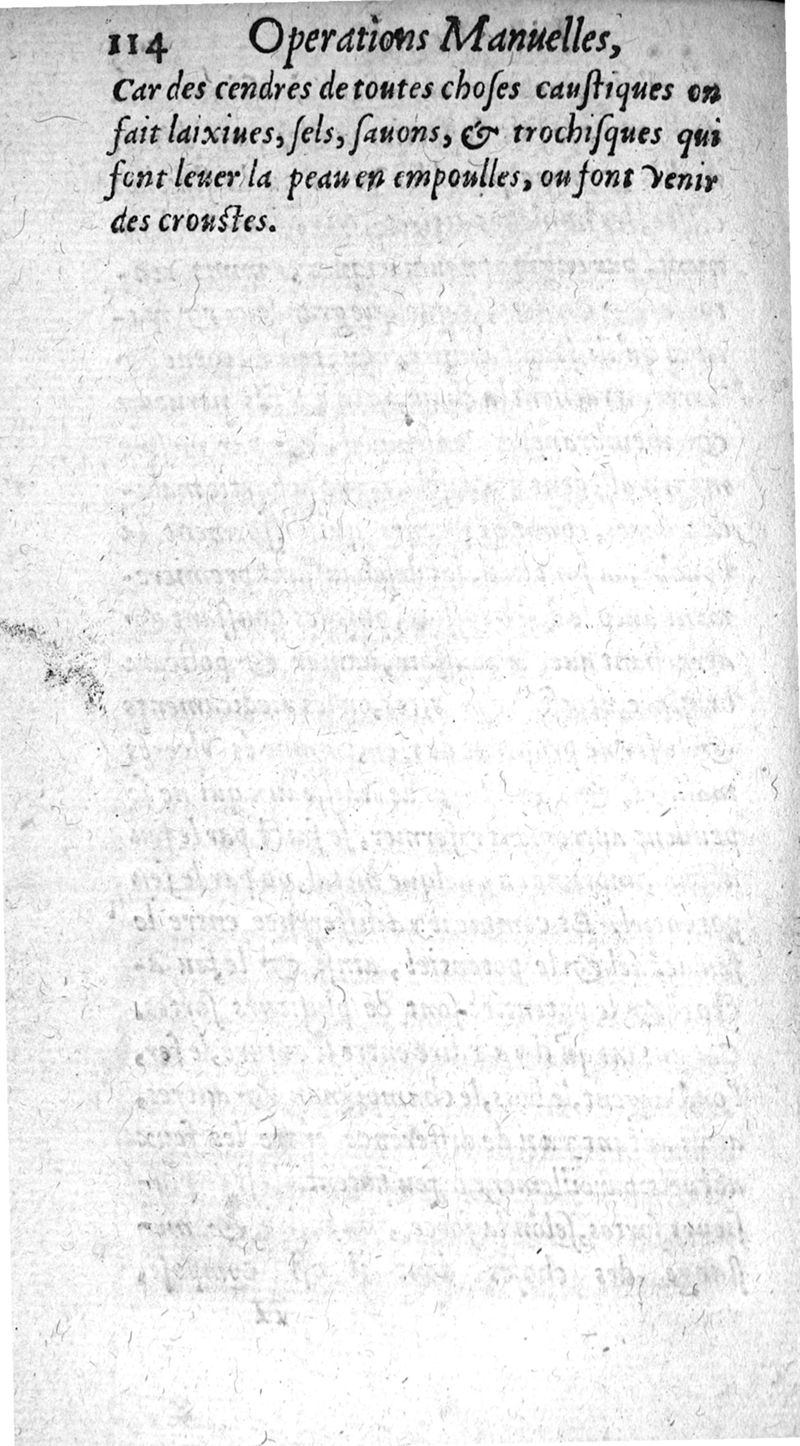 114 Operations Manuelles,
Car des cendres de toutes choſes cauſtiques on
fait laixiues, ſels, ſauons, & trochiſques qui
font leuer la peau en empoulles, ou font venir
des crouſtes.